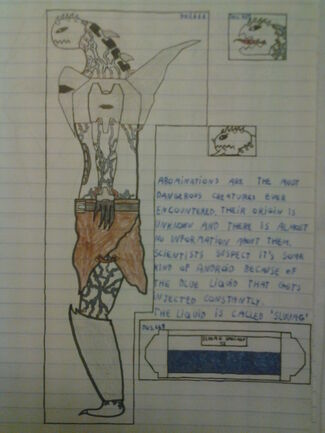 ABOMINATIONS ARE THE MOST
DANGEROUS CREATURES EVER
ENCOUNTERED. THEIR ORIGIN IS
UNKNOWN AND THERE IS ALMOST
NO INFORMATION ABOUT THEM.
SCIENTISTS SUSPECT IT'S SOME
KIND OF ANDROID BECAUSE OF
THE BLUE LIQUID THAT GETS
INJECTED CONSTANTLY.
THE LIQUID IS CALLED